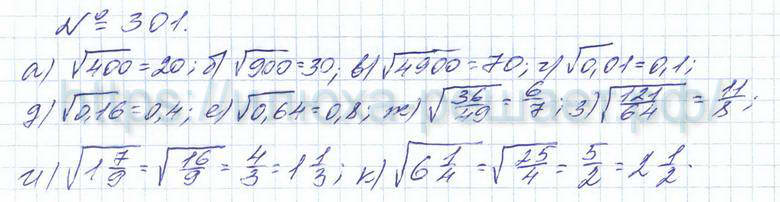 № 301.
а) √400 = 20; б) √900 = 30; в) √4900 = 70; г) √0,01 = 0,1;
д) √0,16 = 0,4; е) √0,64 = 0,8; ж) √(36/49) = 6/7; з) √(121/64) = 11/8;
и) √(1 7/9) = √(16/9) = 4/3 = 1 1/3; к) √(6 1/4) = √(25/4) = 5/2 = 2 1/2.